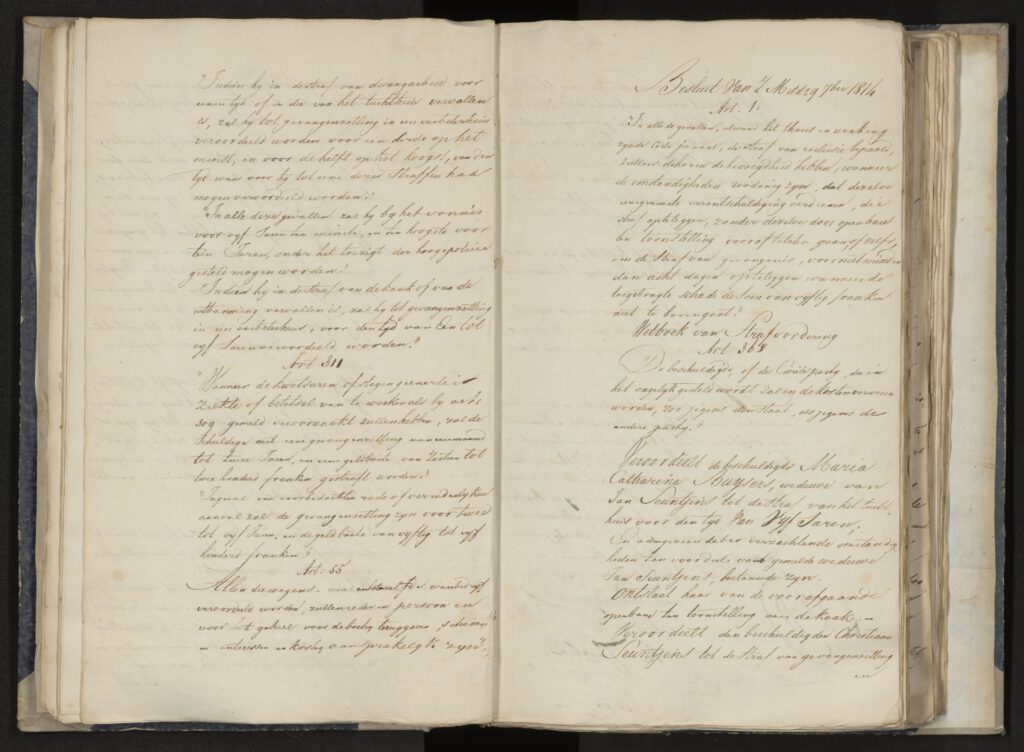 "Indien hij in de straf van dwangarbeid voor
eenen tijd of in die van het tuchthuis vervallen
is, zal hij tot gevangenzetting in een verbeterhuis
veroordeeld worden voor een derde op het
minst, en voor de helft op het hoogst, van den
tijd waar voor hij tot eene dezer Straffen had
mogen veroordeeld worden."
"In alle deze gevallen zal hij bij het vonnis
voor vijf Jaren ten minste, en ten hoogste voor
tien Jaren, onder het toevigt der hooge policie
gesteld mogen worden."
"Indien hij in de straf van de kaak of van de
uitbanning vervallen is, zal hij tot gevangenzetting
in een verbeterhuis, voor den tijd van Een tot
vijf Jaren veroordeeld worden."
Art 311
"Wanneer de kwetsuren of slagen geenerlei
ziekte of beletsel van te werken als bij art
309 gemeld veroorzaakt zullen hebben, zal de
schuldige met eene gevangenzetting van eene maand
tot twee Jaren, en eene geldboete van 16 tot
twee honderd franken gestraft worden."
"Ingeval van voorbedachten rade of
aanval zal de gevangenzetting zijn voor twee
tot vijf Jaren, en de geldboete van vijftig tot vijf
honderd franken."
Art: 55.
Allen die wegens een wanbedrijf
veroordeeld worden, zullen ieder in persoon en
voor het geheel voor de boeten teruggaven, schaden
en interessen en kosten aansprakelijk zijn".
Besluit Van 2 7ber 1814
Art. 1.
"In alle de gevallen, alwaar het thans in werking
zijnde Code penaal, de straf van reclusie bepaald,
zullen de hoven de bevoegdheid hebben, wanneer
de omstandigheden zoodanig zijn, dat dezelve
eenigermate verontschuldiging verdienen, die
straf opteleggen, zonder dezelve door openbare
ten toonstelling vooraf te laten gaan, of zelfs
om de straf van gevangenis, voor niet minder
dan acht dagen opteleggen wanneer de
toegebragte schade de som van vijftig franken
niet te boven gaat."
Wetboek van Strafvordering
Art 368
"De beschuldigde, of de Civile partij, die in
het ongelijk gesteld wordt zal in de kosten verwezen
worden, zoo jegens den Staat, als jegens de
andere partij."
Veroordeelt de beschuldigde Maria
Catharina Ruijters, weduwe van
Jan Peuntjens tot de straf van het tucht
huis voor den tijd Van Vijf Jaren;
En aangezien dat er verzachtende omstandig
heden ten voordeele van gemelde weduwe
Jan Peuntjens, bestaande zijn.
Ontslaat haar van de voorafgaande
openbare ten toonstelling aan de kaak en
Veroordeelt den beschuldigden Christiaan
Peuntjens tot de straf van gevangenzetting
en